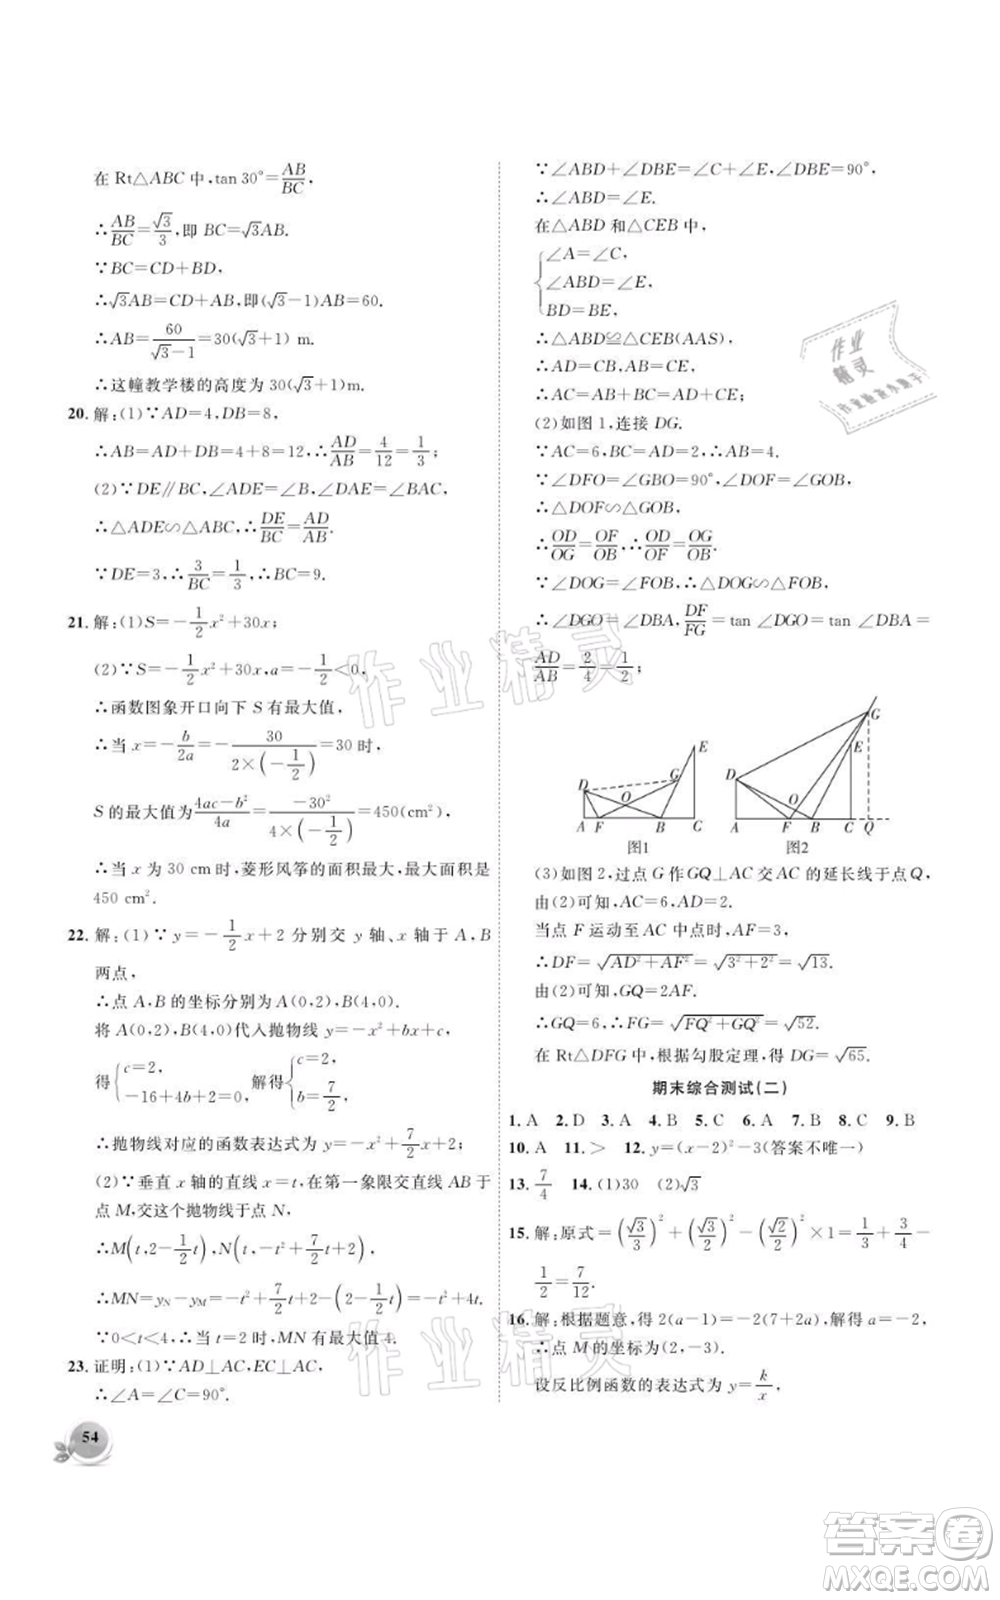 在 Rt△ABC 中,tan 30°=AB/BC,
∴AB/BC=√3/3,即 BC=√3AB.
∵BC=CD+BD,
∴√3AB=CD+AB,即(√3-1)AB=60.
∴AB=60/(√3-1)=30(√3+1) m.
∴这幢教学楼的高度为 30(√3+1)m.
20. 解:(1)∵AD=4,DB=8,
∴AB=AD+DB=4+8=12,∴AD/AB=4/12=1/3;
(2)∵DE∥BC,∠ADE=∠B,∠DAE=∠BAC,
∴△ADE∽△ABC,∴DE/BC=AD/AB.
∵DE=3,∴3/BC=1/3,∴BC=9.
21. 解:(1)S=-1/2x²+30x;
(2)∵S=-1/2x²+30x,a=-1/2<0,
∴函数图象开口向下 S 有最大值,
∴当 x=-b/2a=-30/(2×(-1/2))=30 时,
S 的最大值为(4ac-b²)/4a=(-30²)/(4×(-1/2))=450(cm²),
∴当 x 为 30 cm 时,菱形风筝的面积最大,最大面积是
450 cm².
22. 解:(1)∵y=-1/2x+2 分别交 y 轴、x 轴于 A,B
两点,
∴点 A,B 的坐标分别为 A(0,2),B(4,0).
将 A(0,2),B(4,0)代入抛物线 y=-x²+bx+c,
得{c=2, -16+4b+2=0, 解得{c=2, b=7/2,
∴抛物线对应的函数表达式为 y=-x²+7/2x+2;
(2)∵垂直 x 轴的直线 x=t,在第一象限交直线 AB 于
点 M,交这个抛物线于点 N,
∴M(t,2-1/2t),N(t,-t²+7/2t+2),
∴MN=yN-yM=-t²+7/2t+2-(2-1/2t)=-t²+4t.
∵0<t<4,∴当 t=2 时,MN 有最大值 4.
23. 证明:(1)∵AD⊥AC,EC⊥AC,
∴∠A=∠C=90°.
54
∵∠ABD+∠DBE=∠E+∠DBE=90°,
∴∠ABD=∠E.
在△ABD 和△CEB 中,
{∠A=∠C,
∠ABD=∠E,
BD=BE,
∴△ABD≌△CEB(AAS),
∴AD=CB,AB=CE,
∴AC=AB+BC=AD+CE;
(2)如图 1,连接 DG.
∵AC=6,BC=AD=2,∴AB=4.
∵∠DFO=∠GBO=90°,∠DOF=∠GOF,
∴△DOF∽△GOB,
∴OD/OG=OF/OB,∴OD/OF=OG/OB.
∵∠DOG=∠FOB,∴△DOG∽△FOB,
∴∠DGO=∠DBA,DF/FG=tan ∠DGO=tan ∠DBA=
AD/AB=2/4=1/2;
D G E O A F B C
图1
G E D O A F B C Q
图2
(3)如图 2,过点 G 作 GQ⊥AC 交 AC 的延长线于点 Q,
由(2)可知,AC=6,AD=2.
当点 F 运动至 AC 中点时,AF=3,
∴DF=√(AD²+AF²)=√(3²+2²)=√13.
由(2)可知,GQ=2AF.
∴GQ=6,∴FG=√(FQ²+GQ²)=√52.
在 Rt△DFG 中,根据勾股定理,得 DG=√65.
期末综合测试(二)
1. A 2. D 3. A 4. B 5. C 6. A 7. B 8. C 9. B
10. A 11. > 12. y=(x-2)²-3(答案不唯一)
13. 7/4 14. (1)30 (2)√3
15. 解:原式=(√3/3)²+(√3/2)²-(√2/2)²×1=1/3+3/4-
1/2=7/12.
16. 解:根据题意,得 2(a-1)=-2(7+2a),解得 a=-2,
∴点 M 的坐标为(2,-3).
设反比例函数的表达式为 y=k/x,
作业精灵
作业精灵
作业
精灵
作业检查小助手
答案卷
MXQE.COM